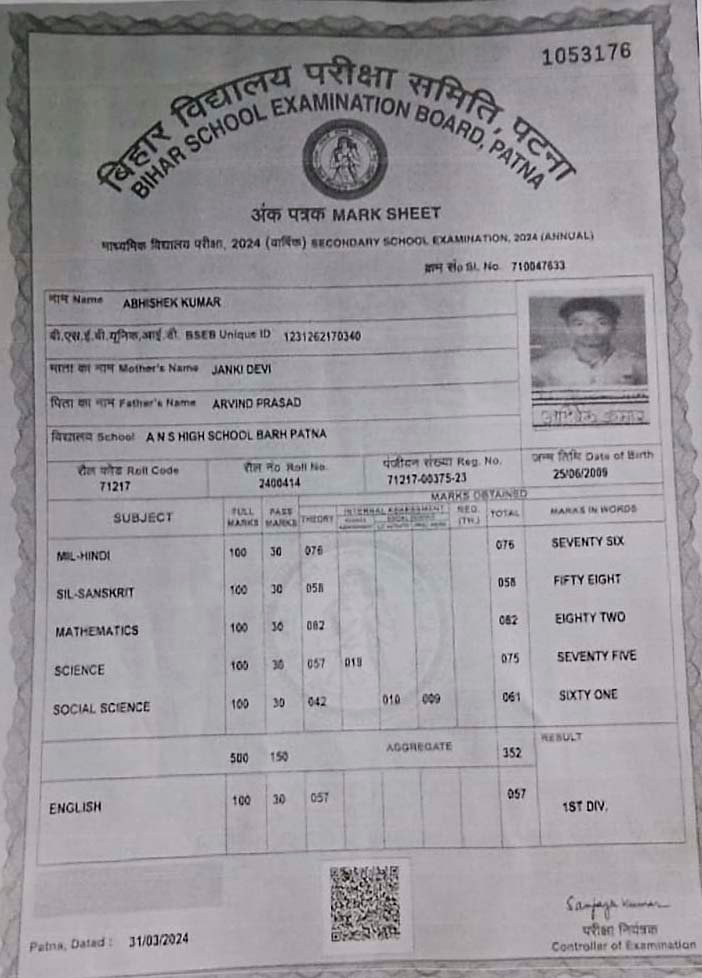 1053176
बिहार विद्यालय परीक्षा समिति, पटना
BIHAR SCHOOL EXAMINATION BOARD, PATNA
अंक पत्रक MARK SHEET
माध्यमिक विद्यालय परीक्षा, 2024 (वार्षिक) SECONDARY SCHOOL EXAMINATION, 2024 (ANNUAL)
क्रम सं० Sl. No. 710047633
नाम Name ABHISHEK KUMAR
बी.एस.ई.बी.यूनिक.आई.डी. BSEB Unique ID 1231262170340
माता का नाम Mother's Name JANKI DEVI
पिता का नाम Father's Name ARVIND PRASAD
विद्यालय School A N S HIGH SCHOOL BARH PATNA
रौल कोड Roll Code रौल नं० Roll No. पंजीयन संख्या Reg. No. जन्म तिथि Date of Birth
71217 2400414 71217-00375-23 25/06/2009
MARKS OBTAINED
SUBJECT FULL MARKS PASS MARKS THEORY INTERNAL ASSESSMENT REG. (TH.) TOTAL MARKS IN WORDS
MIL-HINDI 100 30 076 076 SEVENTY SIX
SIL-SANSKRIT 100 30 058 058 FIFTY EIGHT
MATHEMATICS 100 30 082 082 EIGHTY TWO
SCIENCE 100 30 057 018 075 SEVENTY FIVE
SOCIAL SCIENCE 100 30 042 010 009 061 SIXTY ONE
500 150 AGGREGATE 352 RESULT
ENGLISH 100 30 057 057 1ST DIV.
Sanjay Kumar
परीक्षा नियंत्रक
Patna, Dated : 31/03/2024 Controller of Examination